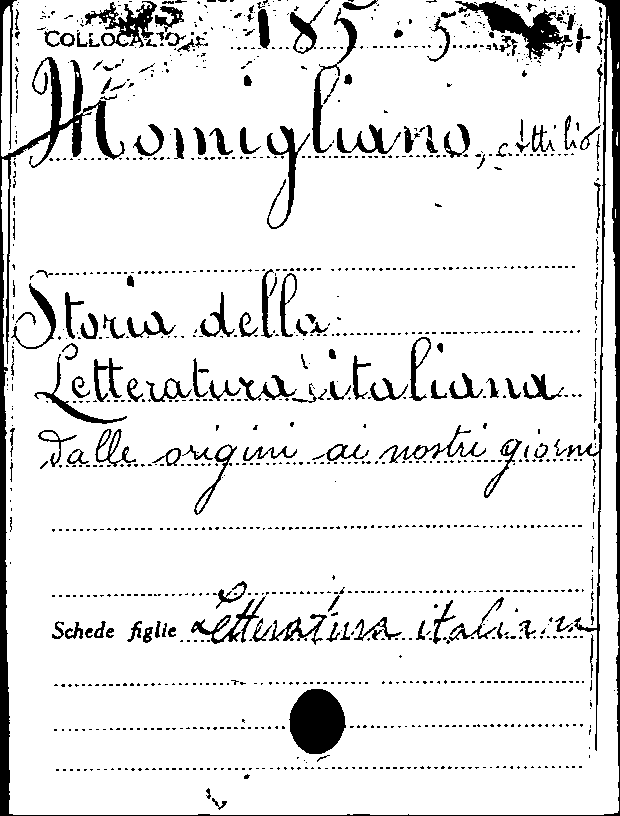 COLLOCAZIONE 185.5
Momigliano, Attilio
Storia della
Letteratura italiana
dalle origini ai nostri giorni
Schede figlie Letteratura italiana